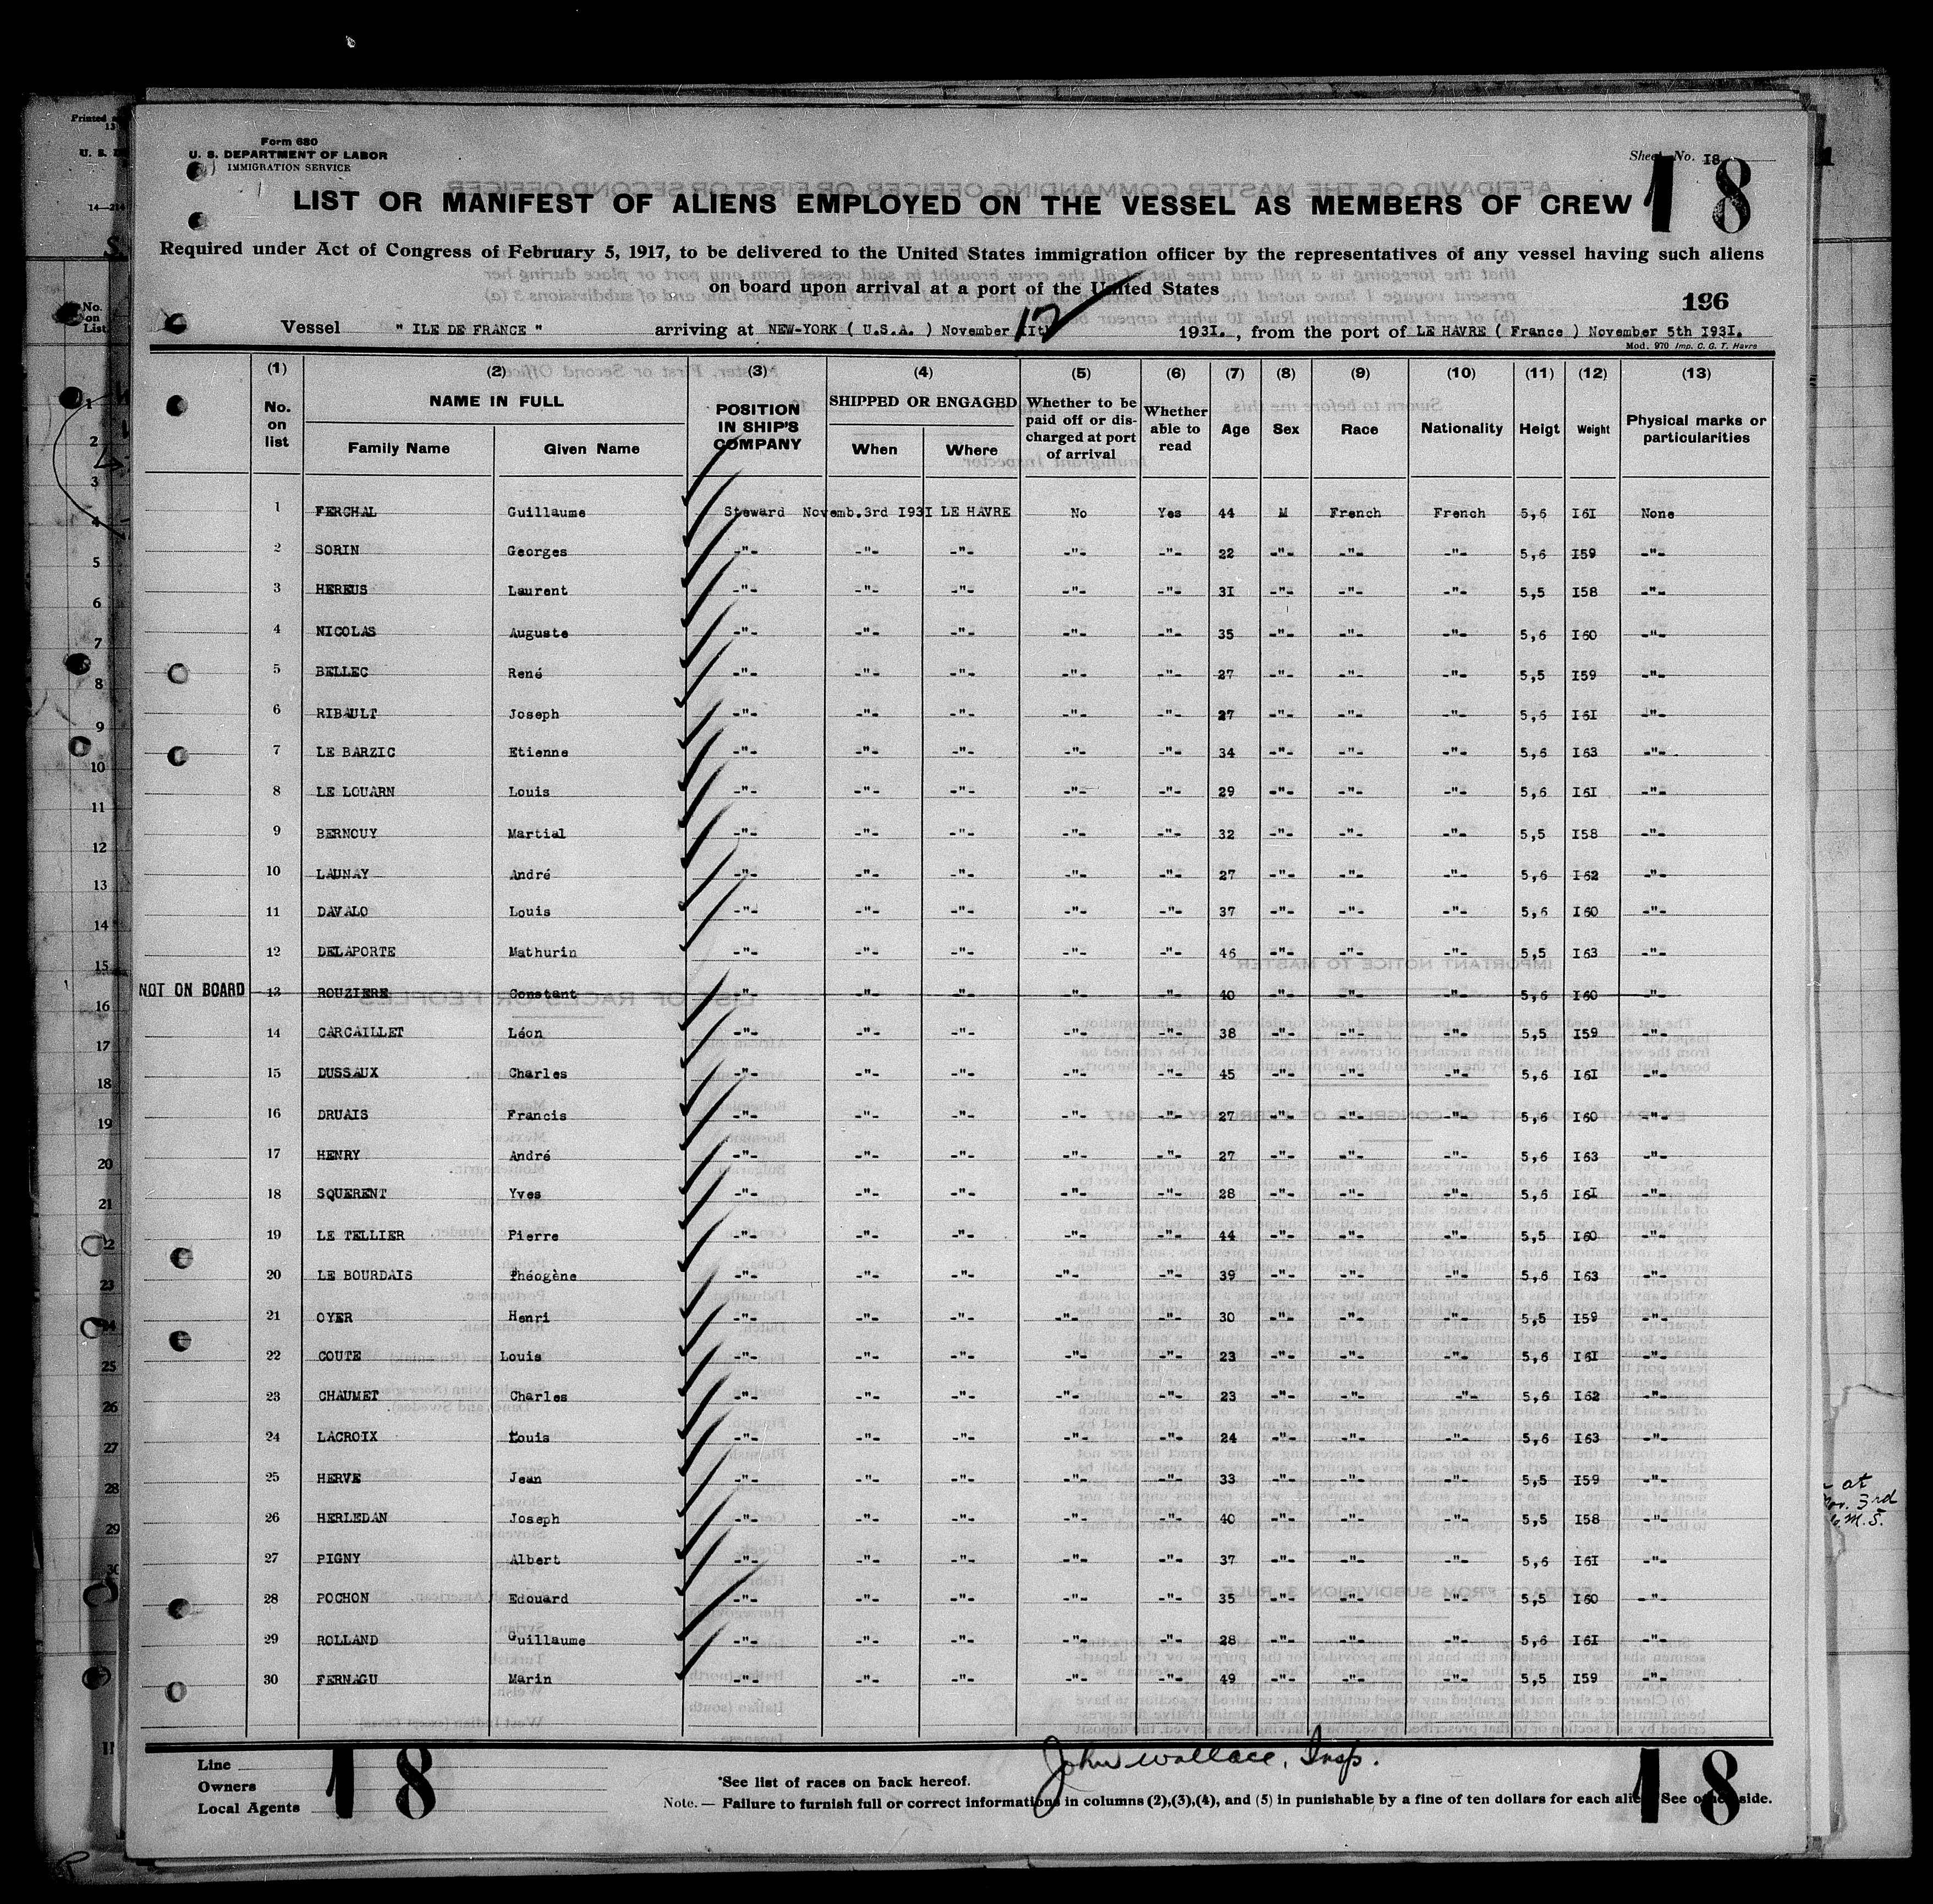 Form 680
U. S. DEPARTMENT OF LABOR
IMMIGRATION SERVICE
Sheet No. I8
18
LIST OR MANIFEST OF ALIENS EMPLOYED ON THE VESSEL AS MEMBERS OF CREW
Required under Act of Congress of February 5, 1917, to be delivered to the United States immigration officer by the representatives of any vessel having such aliens
on board upon arrival at a port of the United States
196
Vessel " ILE DE FRANCE " arriving at NEW-YORK ( U.S.A. ) November 12 193I. , from the port of LE HAVRE ( France ) November 5th I93I.
Mod. 970 Imp. C. G. T. Havre
(1) (2) (3) (4) (5) (6) (7) (8) (9) (10) (11) (12) (13)
No. on list NAME IN FULL Family Name Given Name POSITION IN SHIP'S COMPANY SHIPPED OR ENGAGED When Where Whether to be paid off or discharged at port of arrival Whether able to read Age Sex Race Nationality Heigt Weight Physical marks or particularities
1 FERCHAL Guillaume Steward Novemb.3rd I93I LE HAVRE No Yes 44 M French French 5,6 I6I None
2 SORIN Georges -"- -"- -"- -"- -"- 22 -"- -"- -"- 5,6 I59 -"-
3 HEREUS Laurent -"- -"- -"- -"- -"- 3I -"- -"- -"- 5,5 I58 -"-
4 NICOLAS Auguste -"- -"- -"- -"- -"- 35 -"- -"- -"- 5,6 I60 -"-
5 BELLEC René -"- -"- -"- -"- -"- 27 -"- -"- -"- 5,5 I59 -"-
6 RIBAULT Joseph -"- -"- -"- -"- -"- 27 -"- -"- -"- 5,6 I6I -"-
7 LE BARZIC Etienne -"- -"- -"- -"- -"- 34 -"- -"- -"- 5,6 I63 -"-
8 LE LOUARN Louis -"- -"- -"- -"- -"- 29 -"- -"- -"- 5,6 I6I -"-
9 BERNOUY Martial -"- -"- -"- -"- -"- 32 -"- -"- -"- 5,5 I58 -"-
10 LAUNAY André -"- -"- -"- -"- -"- 27 -"- -"- -"- 5,6 I62 -"-
11 DAVALO Louis -"- -"- -"- -"- -"- 37 -"- -"- -"- 5,6 I60 -"-
12 DELAPORTE Mathurin -"- -"- -"- -"- -"- 46 -"- -"- -"- 5,5 I63 -"-
NOT ON BOARD 13 ROUZIERE Constant -"- -"- -"- -"- -"- 40 -"- -"- -"- 5,6 I60 -"-
14 CARCAILLET Léon -"- -"- -"- -"- -"- 38 -"- -"- -"- 5,5 I59 -"-
15 DUSSAUX Charles -"- -"- -"- -"- -"- 45 -"- -"- -"- 5,6 I6I -"-
16 DRUAIS Francis -"- -"- -"- -"- -"- 27 -"- -"- -"- 5,6 I60 -"-
17 HENRY André -"- -"- -"- -"- -"- 27 -"- -"- -"- 5,6 I63 -"-
18 SQUERENT Yves -"- -"- -"- -"- -"- 28 -"- -"- -"- 5,6 I6I -"-
19 LE TELLIER Pierre -"- -"- -"- -"- -"- 44 -"- -"- -"- 5,5 I60 -"-
20 LE BOURDAIS Théogène -"- -"- -"- -"- -"- 39 -"- -"- -"- 5,6 I63 -"-
21 OYER Henri -"- -"- -"- -"- -"- 30 -"- -"- -"- 5,5 I59 -"-
22 COUTE Louis -"- -"- -"- -"- -"- 23 -"- -"- -"- 5,6 I6I -"-
23 CHAUMET Charles -"- -"- -"- -"- -"- 23 -"- -"- -"- 5,6 I62 -"-
24 LACROIX Louis -"- -"- -"- -"- -"- 24 -"- -"- -"- 5,6 I63 -"-
25 HERVE Jean -"- -"- -"- -"- -"- 33 -"- -"- -"- 5,5 I59 -"-
26 HERLEDAN Joseph -"- -"- -"- -"- -"- 40 -"- -"- -"- 5,5 I58 -"-
27 PIGNY Albert -"- -"- -"- -"- -"- 37 -"- -"- -"- 5,6 I6I -"-
28 POCHON Edouard -"- -"- -"- -"- -"- 35 -"- -"- -"- 5,5 I60 -"-
29 ROLLAND Guillaume -"- -"- -"- -"- -"- 28 -"- -"- -"- 5,6 I6I -"-
30 FERNAGU Marin -"- -"- -"- -"- -"- 49 -"- -"- -"- 5,5 I59 -"-
John Wallace, Insp.
Line
Owners
Local Agents
18
*See list of races on back hereof.
Note. — Failure to furnish full or correct informations in columns (2),(3),(4), and (5) in punishable by a fine of ten dollars for each alien. See other side.
18